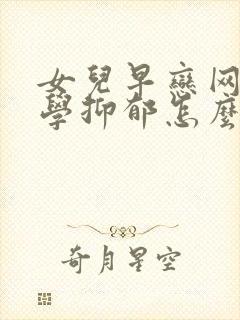 女兒早戀网
學抑郁怎麼
奇月星空